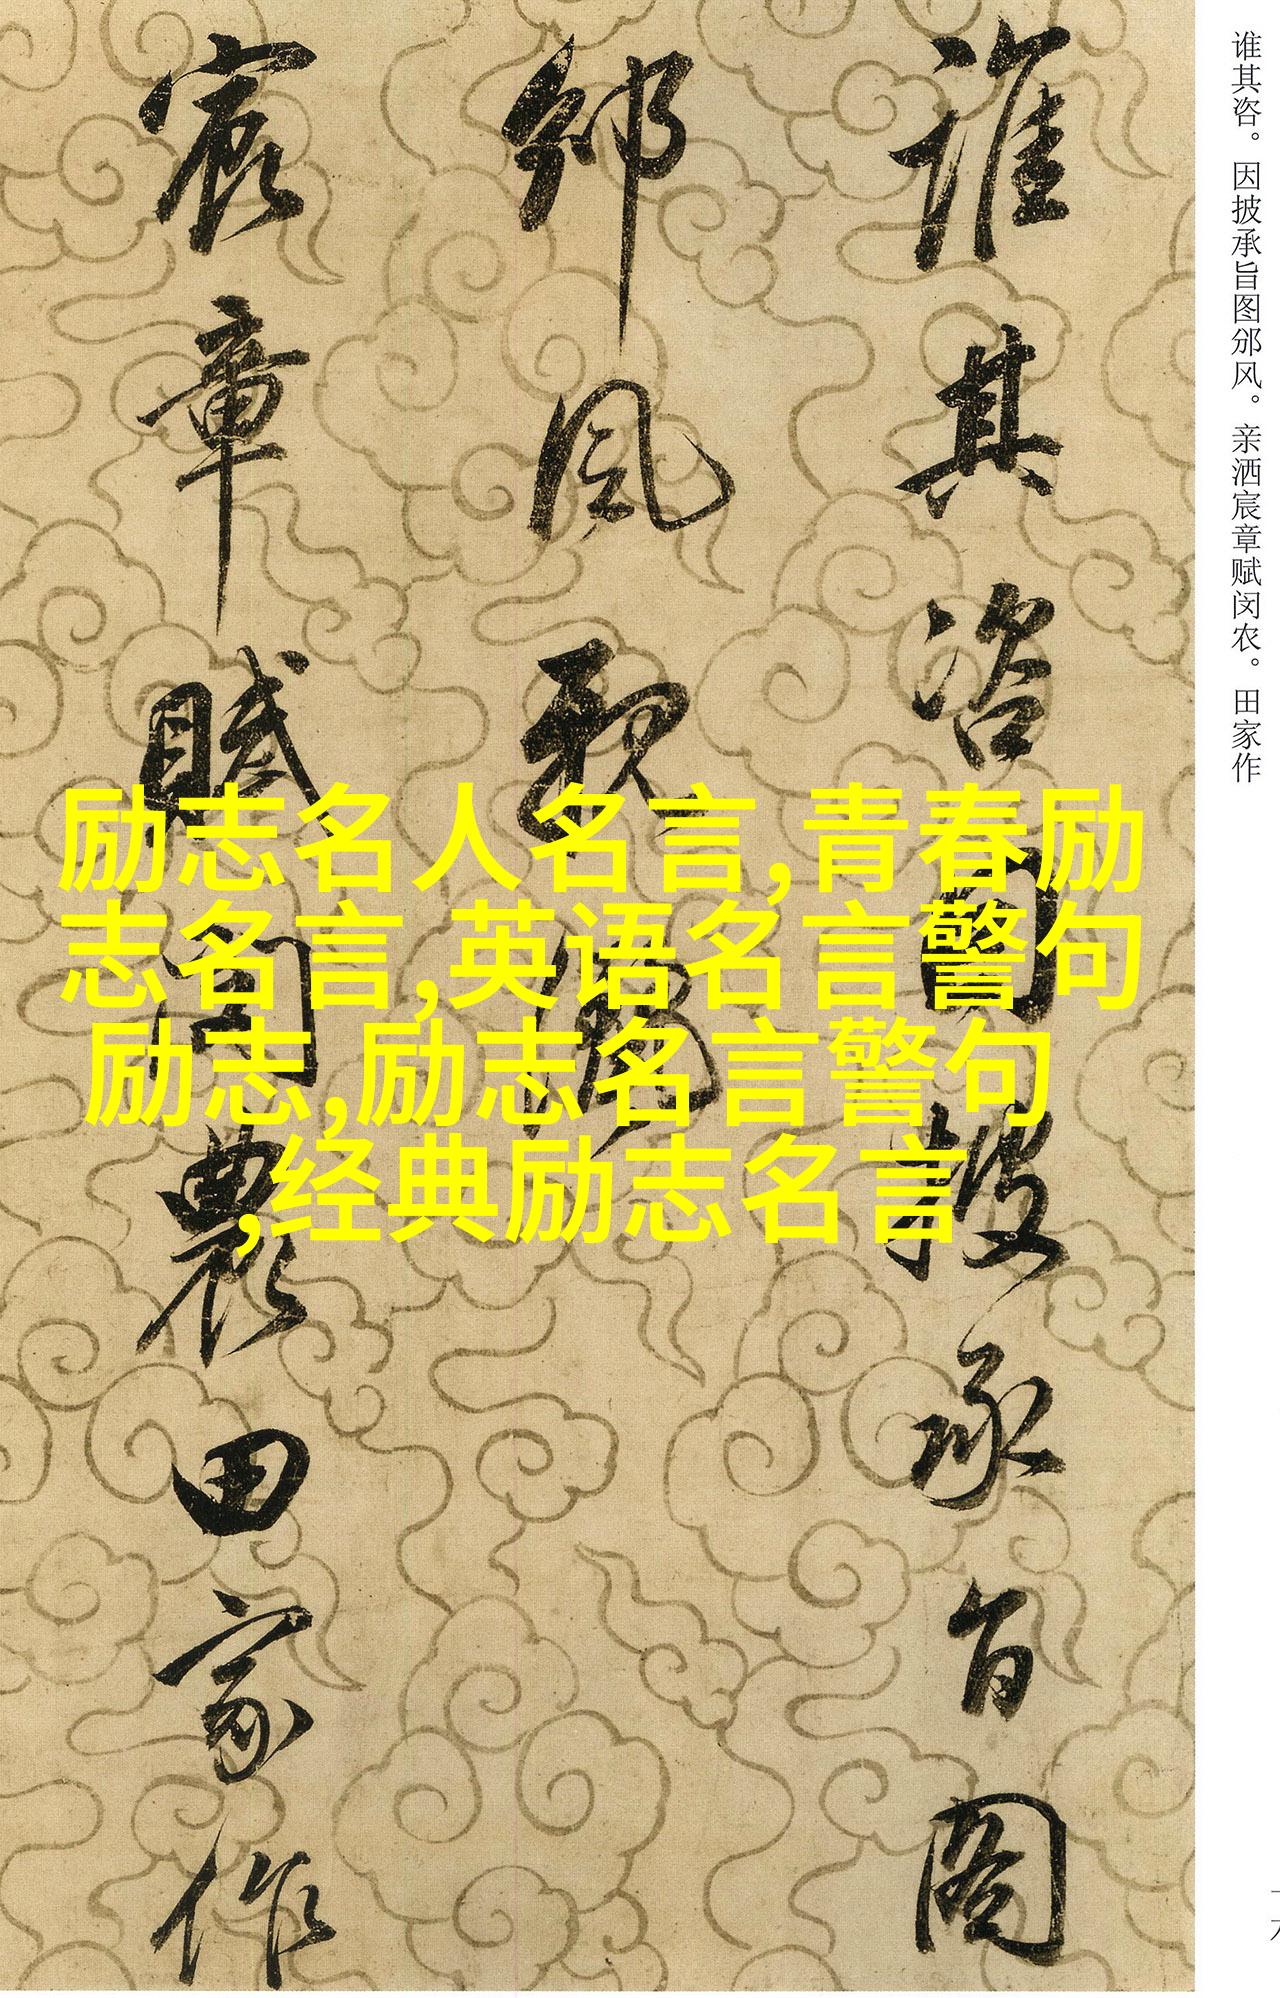 谁其咨。因披承旨图邠风。亲洒宸章赋闵农。田家作
誰其咨因披承旨圖
邠風親灑
宸章賦閔農田家作
励志名人名言,青春励
志名言,英语名言警句
励志,励志名言警句
,经典励志名言